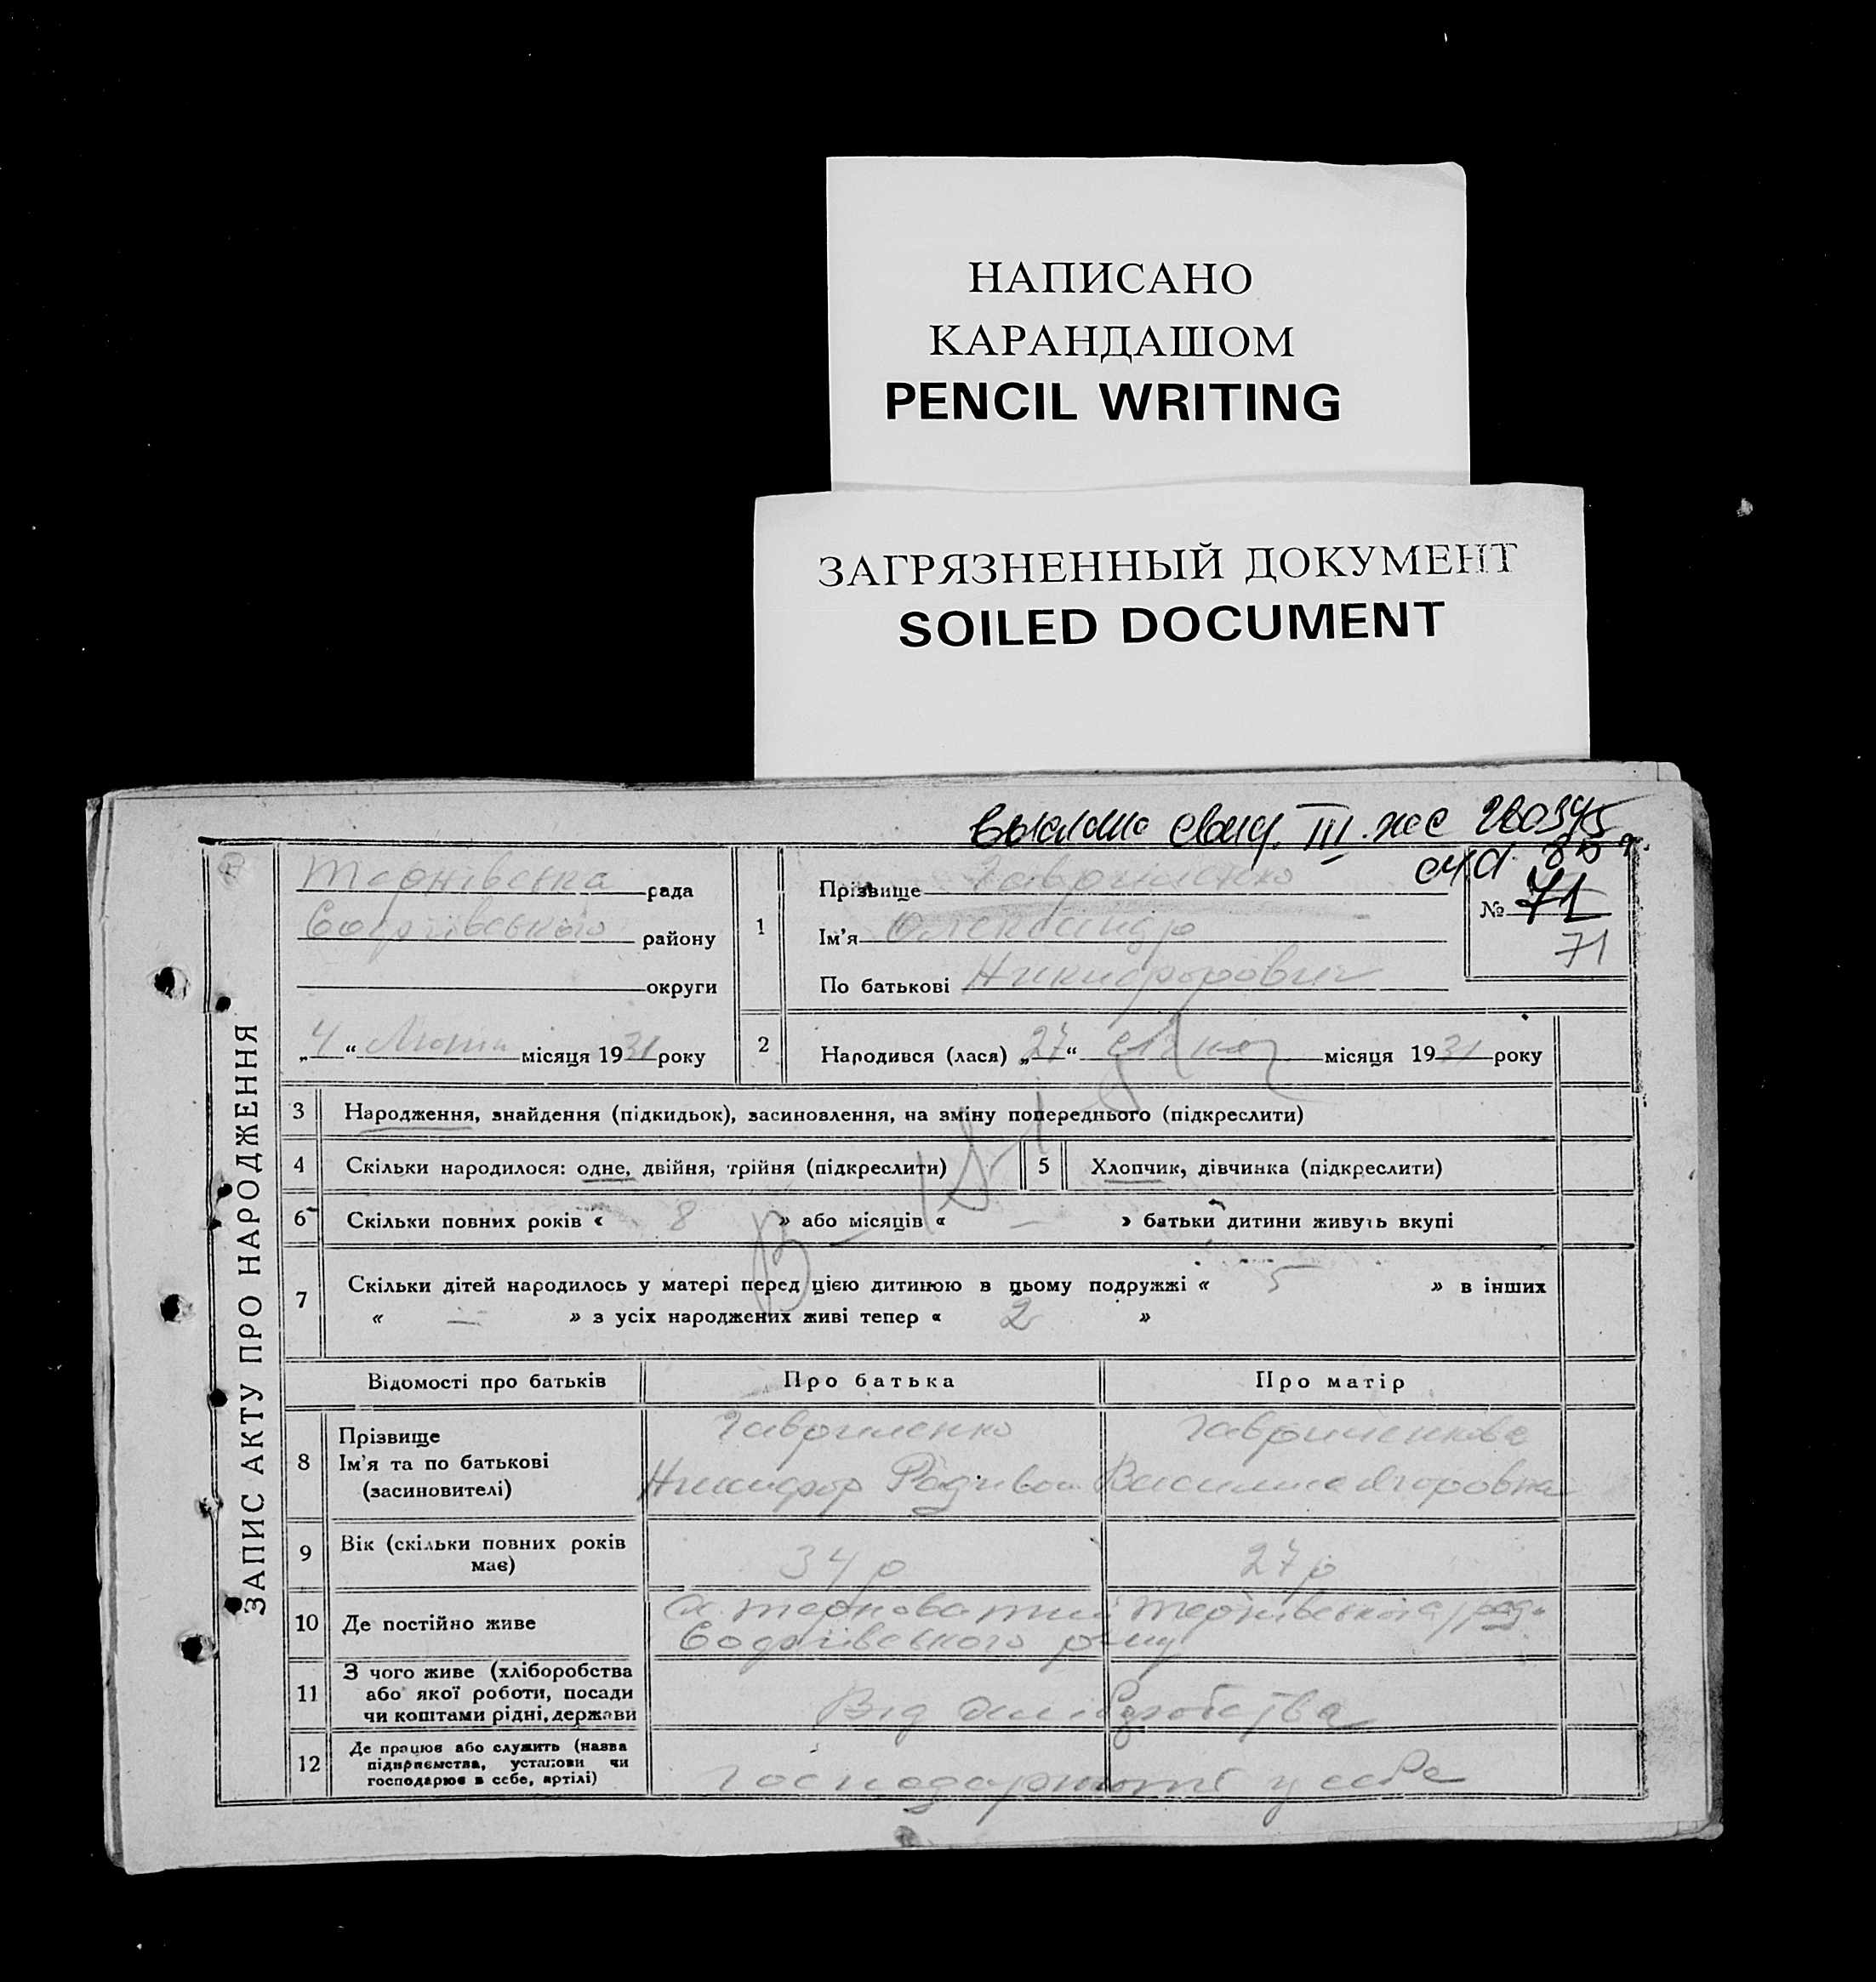 НАПИСАНО
КАРАНДАШОМ
PENCIL WRITING
ЗАГРЯЗНЕННЫЙ ДОКУМЕНТ
SOILED DOCUMENT
ЗАПИС АКТУ ПРО НАРОДЖЕННЯ
Тернівська рада
району
округи
„4“ місяця 1931 року
1
Прізвище Гавриленко
Ім'я Олександр
По батькові Никифорович
№ 71
71
2
Народився (лася) „27“ січня місяця 1931 року
3 Народження, знайдення (підкидьок), засиновлення, на зміну попереднього (підкреслити)
4 Скільки народилося: одне, двійня, трійня (підкреслити) 5 Хлопчик, дівчинка (підкреслити)
6 Скільки повних років « 8 » або місяців « — » батьки дитини живуть вкупі
7 Скільки дітей народилось у матері перед цією дитиною в цьому подружжі « 5 » в інших
« — » з усіх народжених живі тепер « 2 »
Відомості про батьків Про батька Про матір
8 Прізвище
Ім'я та по батькові
(засиновителі)
Гавриленко
Никифор
Василина
9 Вік (скільки повних років
має)
34 р 27 р
10 Де постійно живе
11 З чого живе (хліборобства
або якої роботи, посади
чи коштами рідні, держави
Від
12 Де працює або служить (назва
підприємства, установи чи
господарює в себе, артілі)
у себе